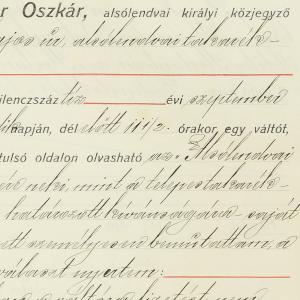 r Oszkár, alsólendvai királyi közjegyző
ajos úr, alsólendvai takarék-
ilenczszáz tíz évi szeptember
napján, dél előtt 11 1/2 órakor egy váltót,
tulsó oldalon olvasható az "Alsólendvai
neki, mint a telepes takarék-
határozott kívánságára saját
ett személyesen bemutattam, a
választ nyertem:
a váltóra fizetést nem